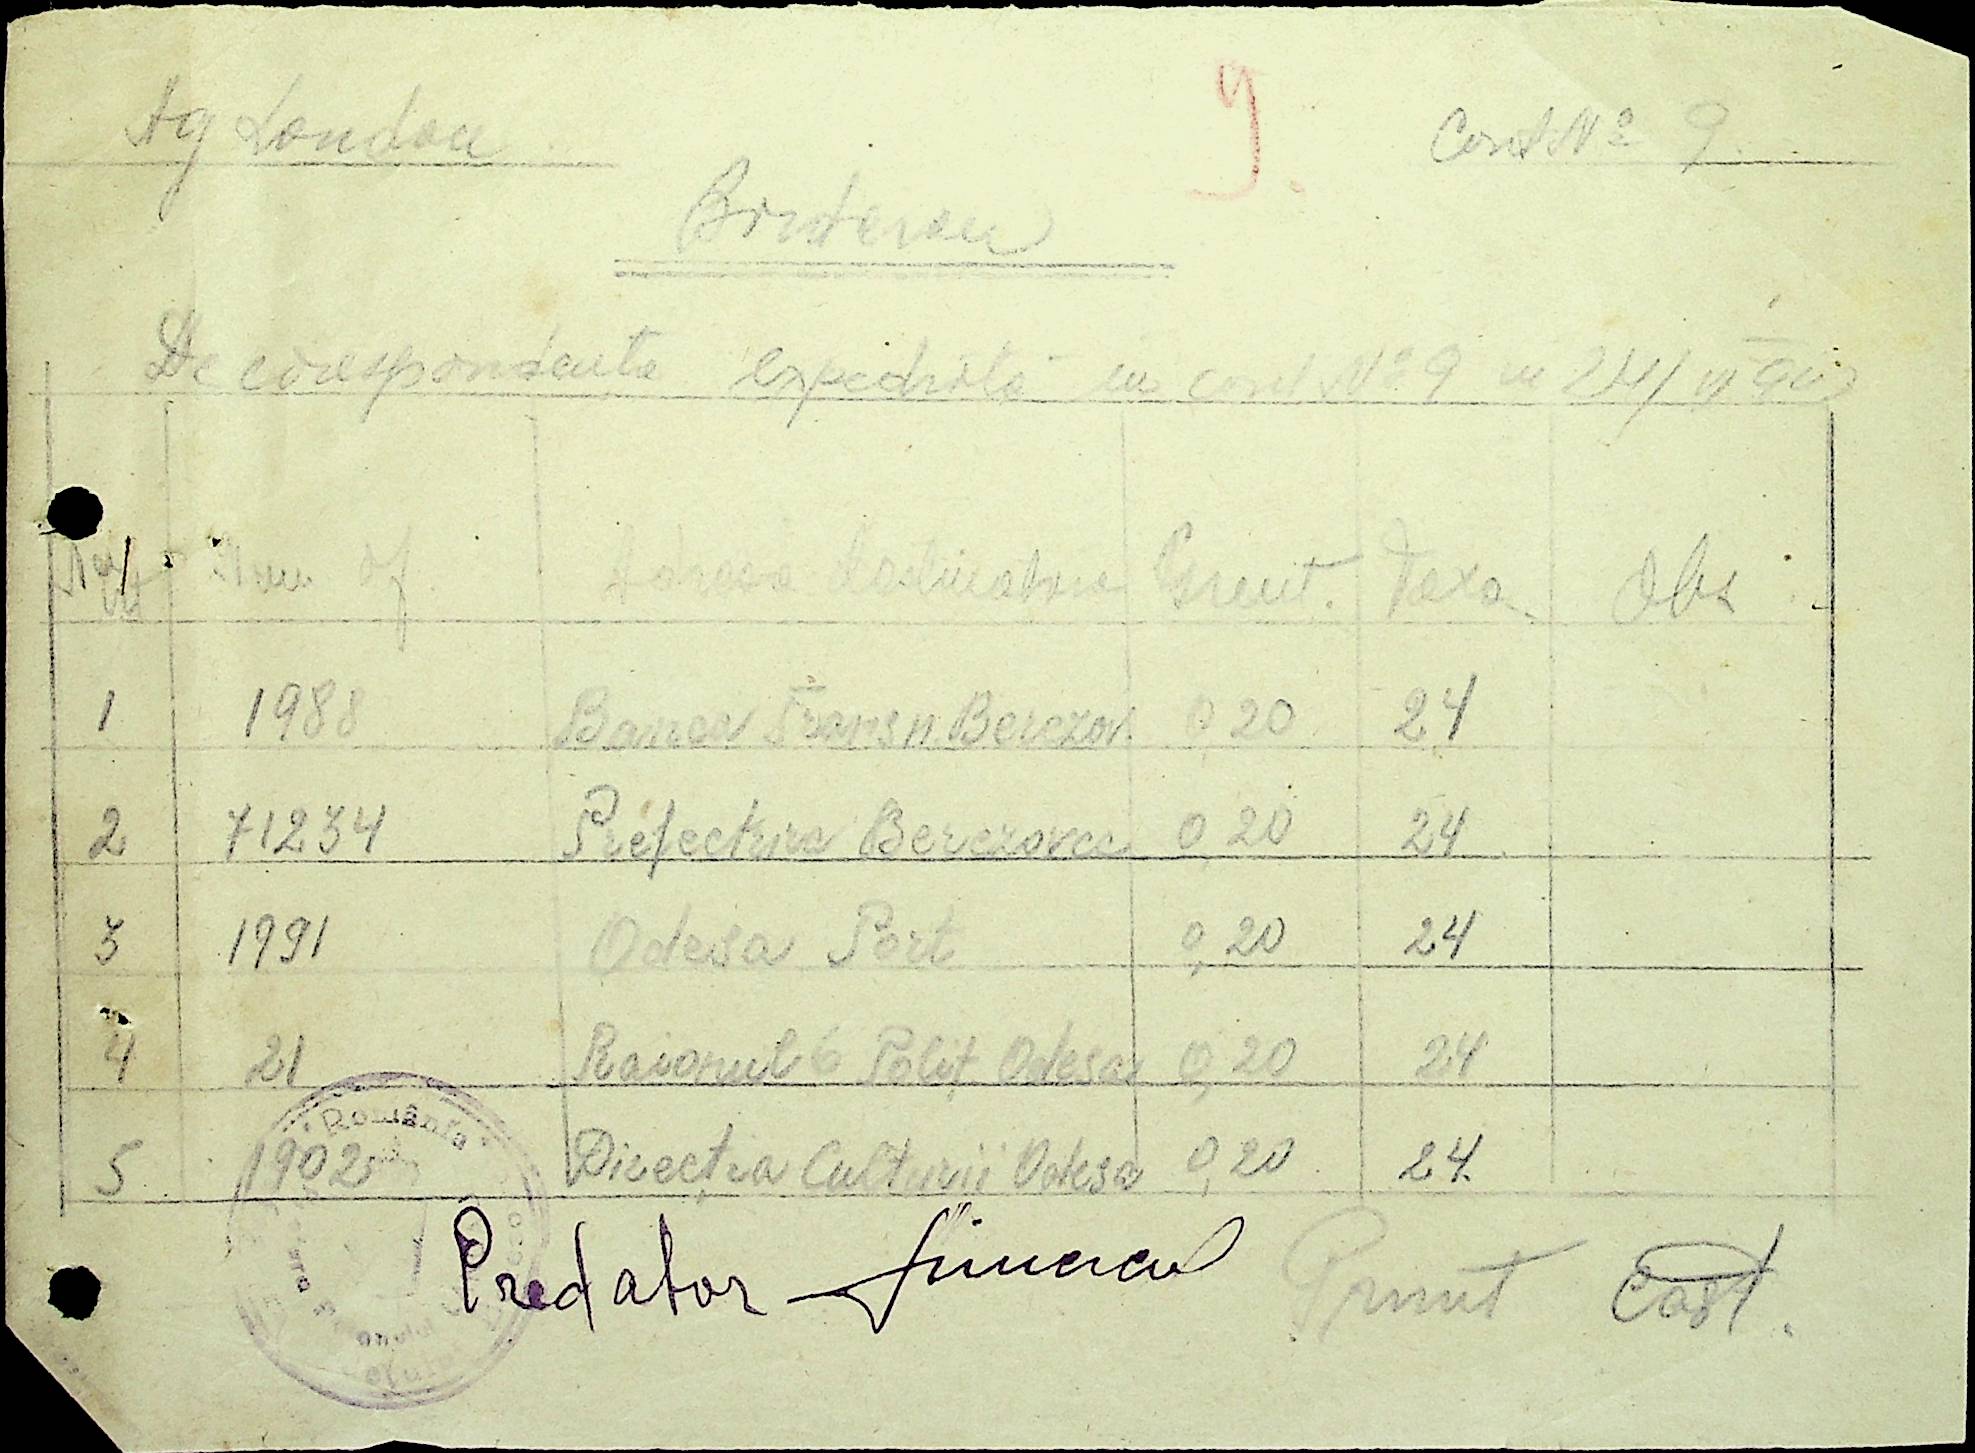 Ag London
9.
Cont Nº 9
Borderou
De corespondenta expediată în cont Nº 9 în 24/VI
Nr/crt Num of Adresa destinatara Greut. Taxa Obs
1 1988 Banca Transn. Berezov. 0,20 24
2 71234 Prefectura Berezovca 0,20 24
3 1991 Odesa Port 0,20 24
4 21 Raionul 6 Poliț Odesa 0,20 24
5 1902 Direcția Culturii Odesa 0,20 24
România
Predator Primit